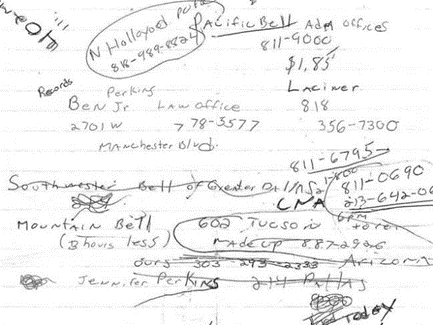 N Hollywood
818-989-8824
PACIFIC Bell Adm offices
811-9000
$1.85
Records
Perkins
Laciner
Ben Jr Law office
818
2701 W
778-3577
356-7300
Manchester Blvd.
811-6795
1-800
811-0690
Southwester Bell of Greater Dallas
CNA
213-642-06
6pm
Mountain Bell
602 Tucson
(3 hours less)
made up 887-2926
ours 303-293-2333 Arizona
Jennifer Perkins 214 Dallas
Today